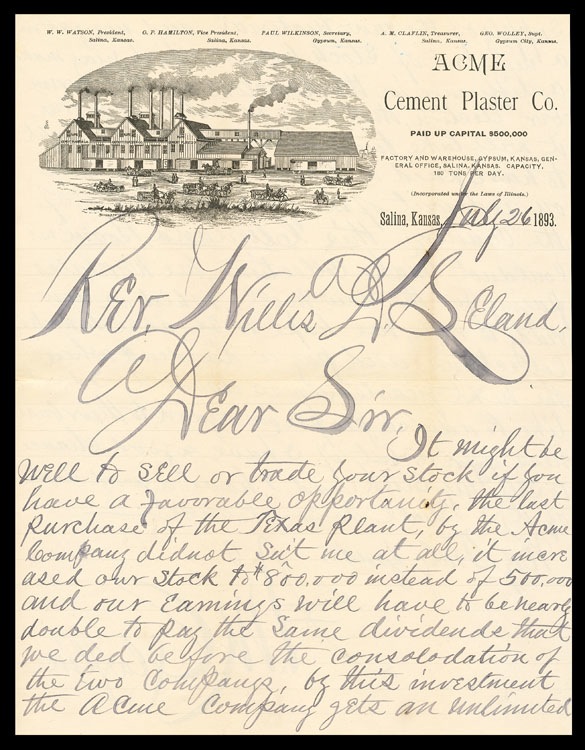 W. W. WATSON, President, Salina, Kansas.
G. P. HAMILTON, Vice President, Salina, Kansas.
PAUL WILKINSON, Secretary, Gypsum, Kansas.
A. M. CLAFLIN, Treasurer, Salina, Kansas.
GEO. WOLLEY, Supt. Gypsum City, Kansas.
ACME
Cement Plaster Co.
PAID UP CAPITAL $500,000
FACTORY AND WAREHOUSE, GYPSUM, KANSAS, GEN-
ERAL OFFICE, SALINA, KANSAS. CAPACITY,
180 TONS PER DAY.
(Incorporated under the Laws of Illinois.)
Salina, Kansas, July 26 1893.
Rev. Willis D. Seland,
Dear Sir,
It might be
well to sell or trade your stock if you
have a favorable opportunity, the last
purchase of the Texas Plant, by the Acme
Company didnot suit me at all, it incre
ased our stock to $800.000 instead of 500,000
and our Earnings will have to be nearly
double to pay the same dividends that
we ded before the consolodation of
the two Companys, by this investment
the Acme Company gets an unlimited